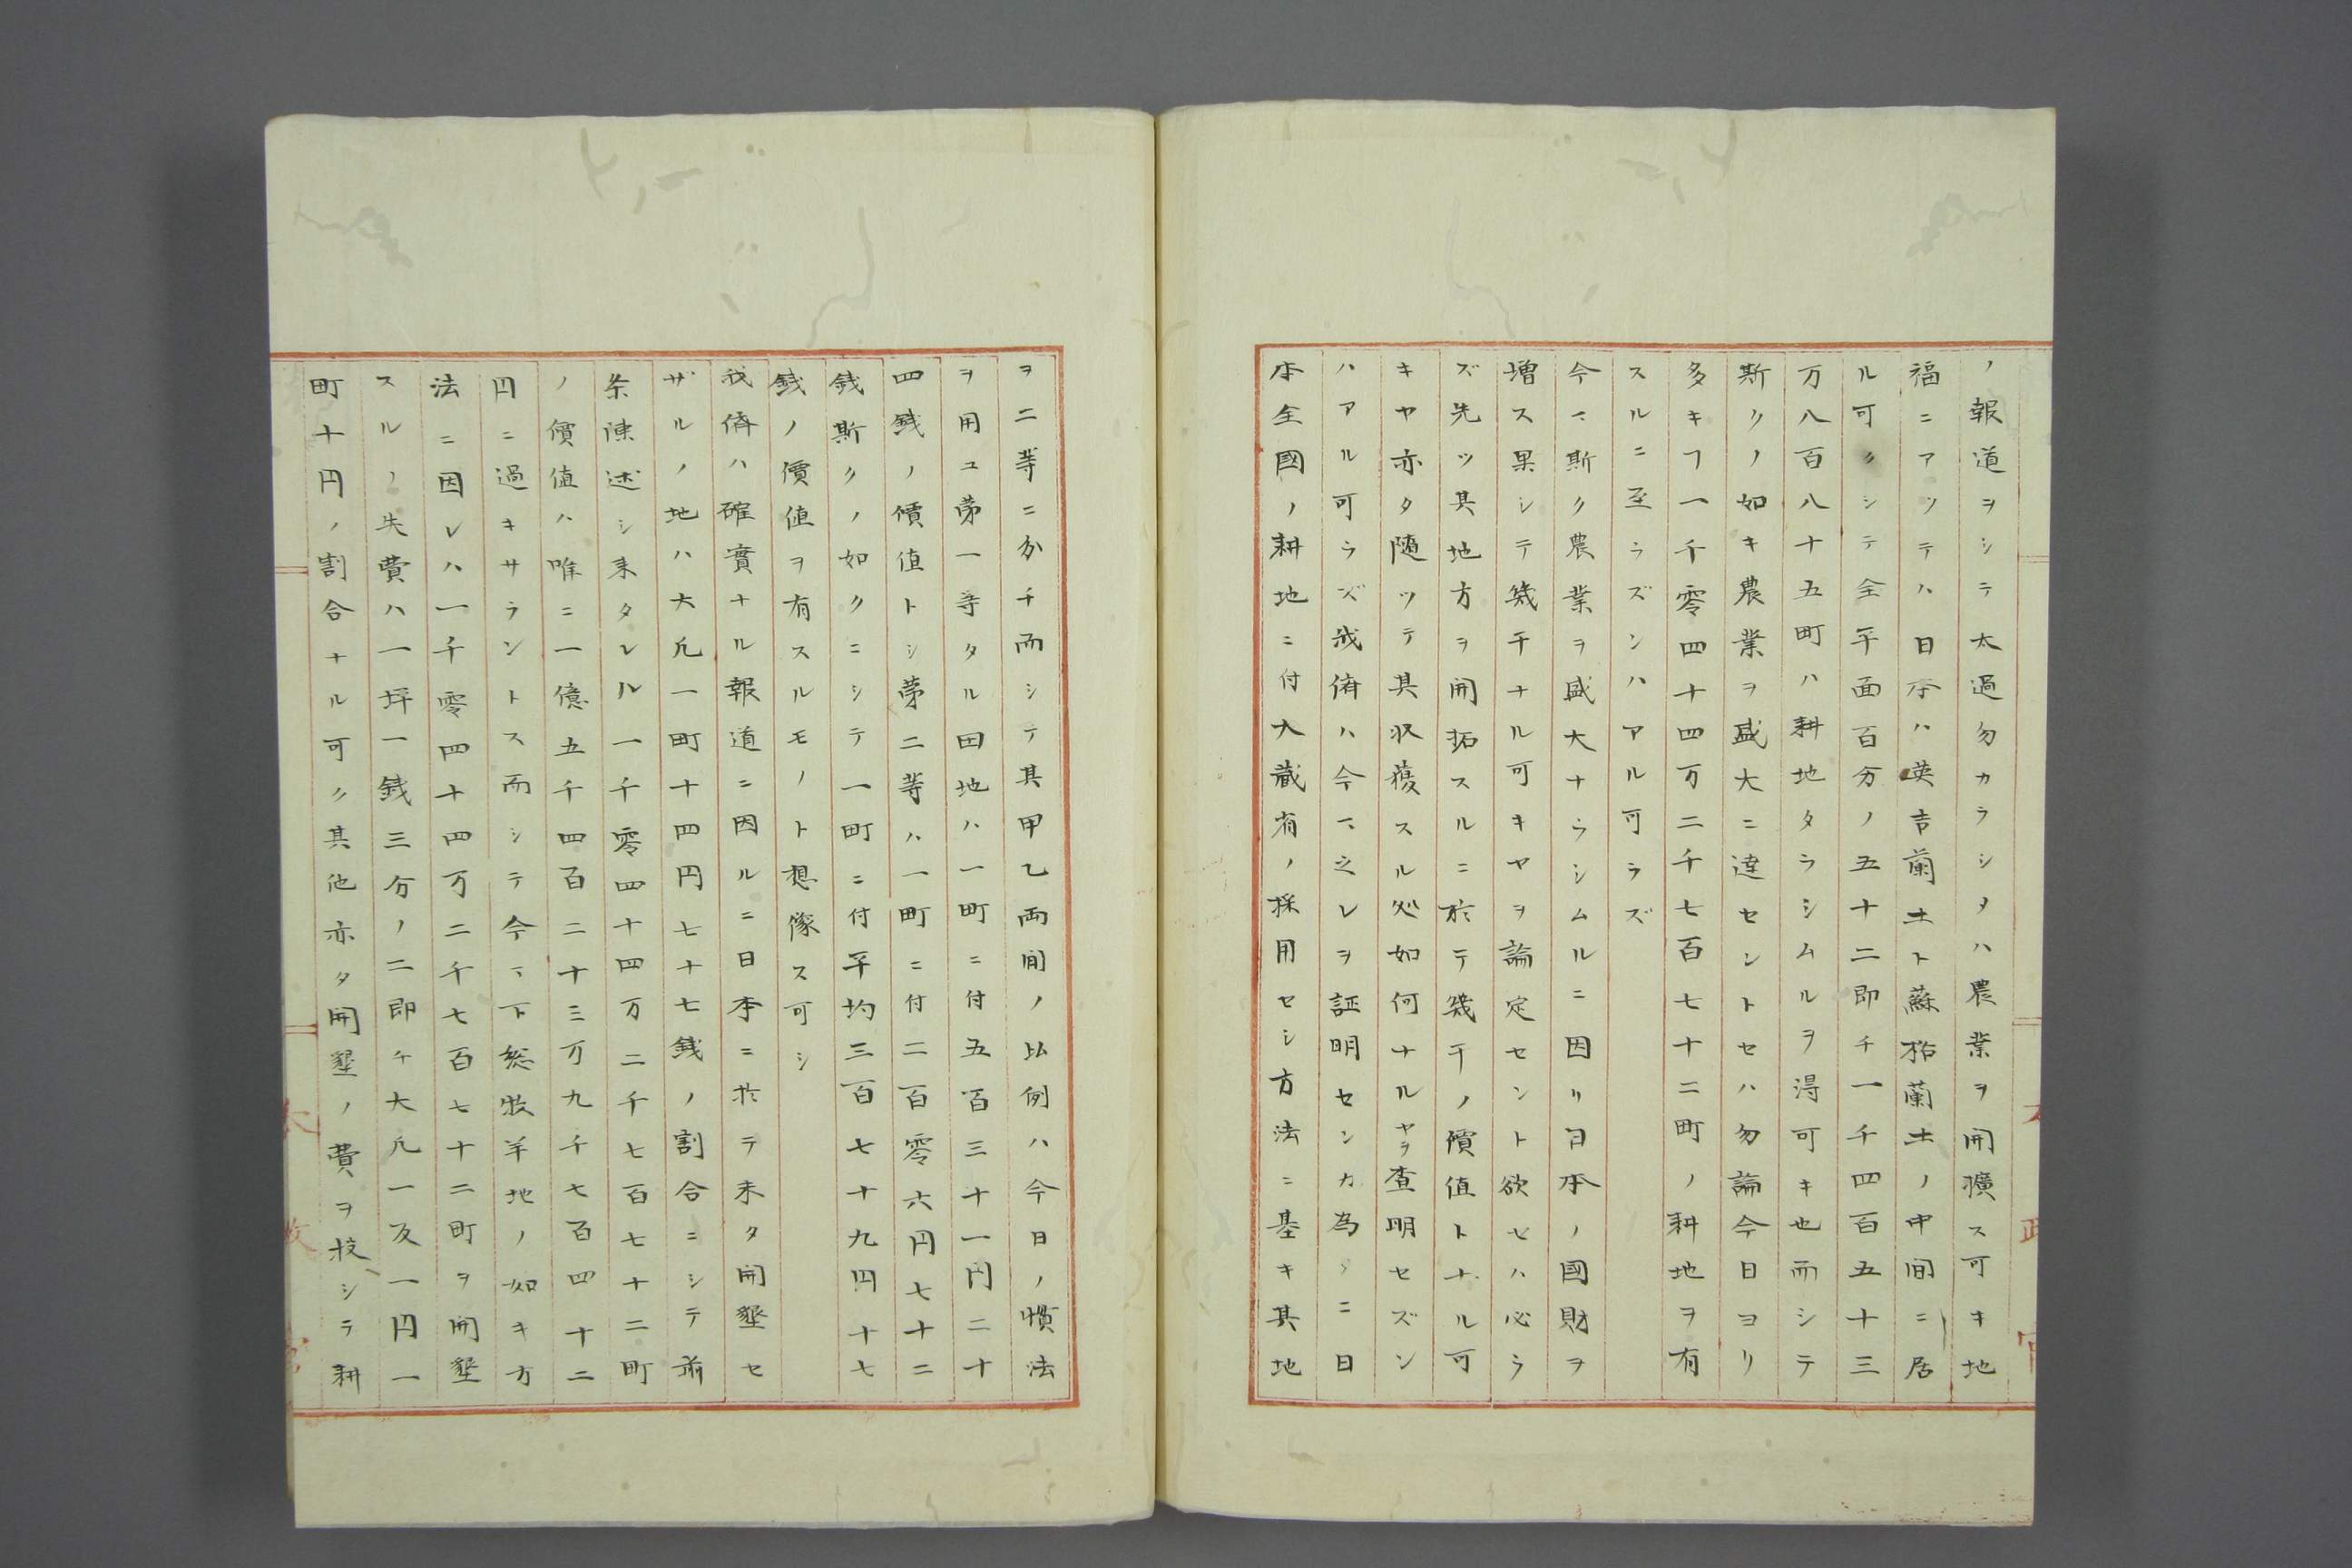 ノ報道ヲシテ太過勿カラシメハ農業ヲ開擴ス可キ地
福ニアツテハ日本ハ英吉蘭土ト蘇格蘭土ノ中間ニ居
ル可クシテ全平面百分ノ五十二即チ一千四百五十三
万八百八十五町ハ耕地タラシムルヲ得可キ也而シテ
斯クノ如キ農業ヲ盛大ニ達セントセハ勿論今日ヨリ
多キヿ一千零四十四万二千七百七十二町ノ耕地ヲ有
スルニ至ラズンハアル可ラズ
今マ斯ク農業ヲ盛大ナラシムルニ因リ日本ノ國財ヲ
増ス果シテ幾干ナル可キヤヲ論定セント欲セハ必ラ
ズ先ツ其地方ヲ開拓スルニ於テ幾干ノ價值トナル可
キヤ亦タ随ツテ其収穫スル処如何ナルヤヲ査明セズン
ハアル可ラズ我儕ハ今マ之レヲ証明センカ為メニ日
本全國ノ耕地ニ付大蔵省ノ採用セシ方法ニ基キ其地
ヲ二等ニ分チ而シテ其甲乙両間ノ比例ハ今日ノ慣法
ヲ用ユ第一等タル田地ハ一町ニ付五百三十一円二十
四銭ノ價値トシ第二等ハ一町ニ付二百零六円七十二
銭斯クノ如クニシテ一町ニ付平均三百七十九円十七
銭ノ價値ヲ有スルモノト想像ス可シ
我儕ハ確實ナル報道ニ因ルニ日本ニ於テ未タ開墾セ
ザルノ地ハ大凡一町十四円七十七銭ノ割合ニシテ前
条陳述シ来タレル一千零四十四万二千七百七十二町
ノ價値ハ唯ニ一億五千四百二十三万九千七百四十二
円ニ過キサラントス而シテ今マ下総牧羊地ノ如キ方
法ニ因レハ一千零四十四万二千七百七十二町ヲ開墾
スルノ失費ハ一坪一銭三分ノ二即チ大凡一反一円一
町十円ノ割合ナル可ク其他亦タ開墾ノ費ヲ投シテ耕
太政官
太政官